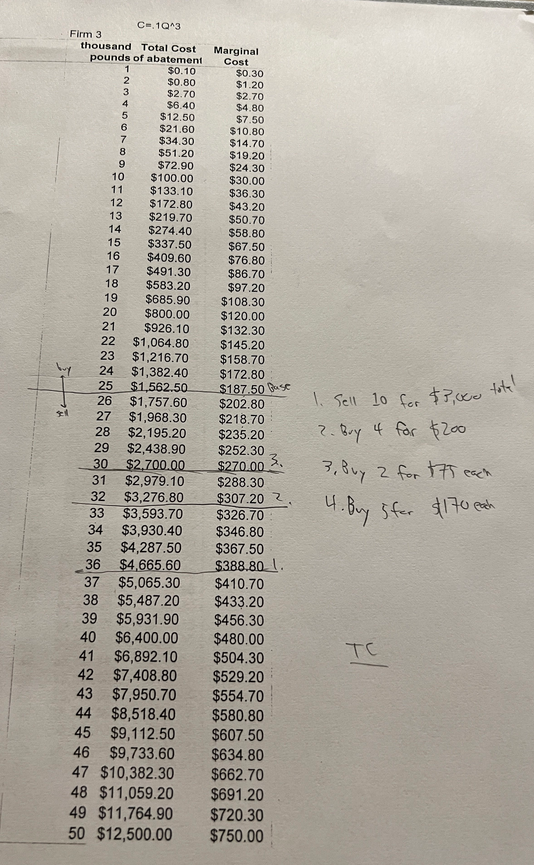 C=.1Q^3
Firm 3
thousand Total Cost Marginal
pounds of abatement Cost
1 $0.10 $0.30
2 $0.80 $1.20
3 $2.70 $2.70
4 $6.40 $4.80
5 $12.50 $7.50
6 $21.60 $10.80
7 $34.30 $14.70
8 $51.20 $19.20
9 $72.90 $24.30
10 $100.00 $30.00
11 $133.10 $36.30
12 $172.80 $43.20
13 $219.70 $50.70
14 $274.40 $58.80
15 $337.50 $67.50
16 $409.60 $76.80
17 $491.30 $86.70
18 $583.20 $97.20
19 $685.90 $108.30
20 $800.00 $120.00
21 $926.10 $132.30
22 $1,064.80 $145.20
23 $1,216.70 $158.70
buy 24 $1,382.40 $172.80
25 $1,562.50 $187.50 Base
sell 26 $1,757.60 $202.80 1. Sell 10 for $3,000 total
27 $1,968.30 $218.70
28 $2,195.20 $235.20 2. Buy 4 for $200
29 $2,438.90 $252.30
30 $2,700.00 $270.00 3. 3. Buy 2 for $75 each
31 $2,979.10 $288.30
32 $3,276.80 $307.20 2. 4. Buy 5 for $170 each
33 $3,593.70 $326.70
34 $3,930.40 $346.80
35 $4,287.50 $367.50
36 $4,665.60 $388.80 1.
37 $5,065.30 $410.70
38 $5,487.20 $433.20
39 $5,931.90 $456.30
40 $6,400.00 $480.00 TC
41 $6,892.10 $504.30
42 $7,408.80 $529.20
43 $7,950.70 $554.70
44 $8,518.40 $580.80
45 $9,112.50 $607.50
46 $9,733.60 $634.80
47 $10,382.30 $662.70
48 $11,059.20 $691.20
49 $11,764.90 $720.30
50 $12,500.00 $750.00